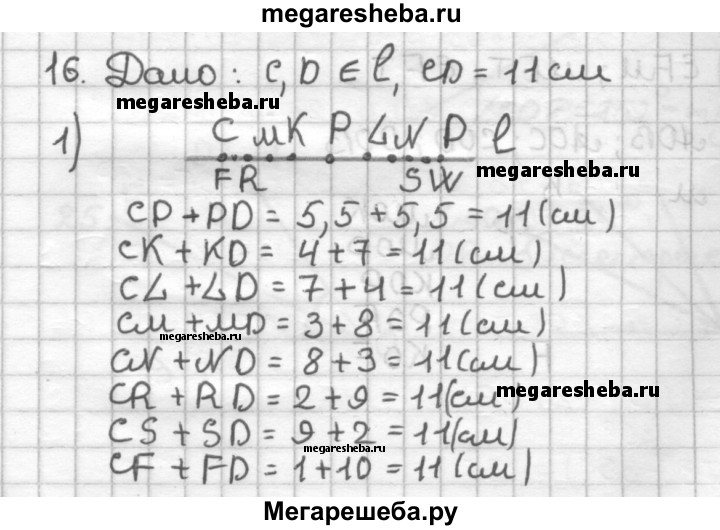 megaresheba.ru
16. Дано: C, D ∈ l, CD = 11 см
megaresheba.ru
1) C M K P L N D l
megaresheba.ru
F R S W
CP + PD = 5,5 + 5,5 = 11 (см)
CK + KD = 4 + 7 = 11 (см)
CL + LD = 7 + 4 = 11 (см)
CM + MD = 3 + 8 = 11 (см)
megaresheba.ru
CN + ND = 8 + 3 = 11 (см)
CR + RD = 2 + 9 = 11 (см)
megaresheba.ru
CS + SD = 9 + 2 = 11 (см)
megaresheba.ru
CF + FD = 1 + 10 = 11 (см)
Мегарешеба.ру